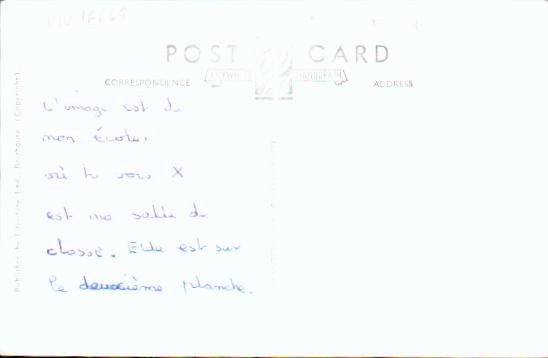 POST CARD
CORRESPONDENCE
ADDRESS
L'image est de
mon École.
où tu vois X
est ma salle de
classe. Elle est sur
le deuxième planche.